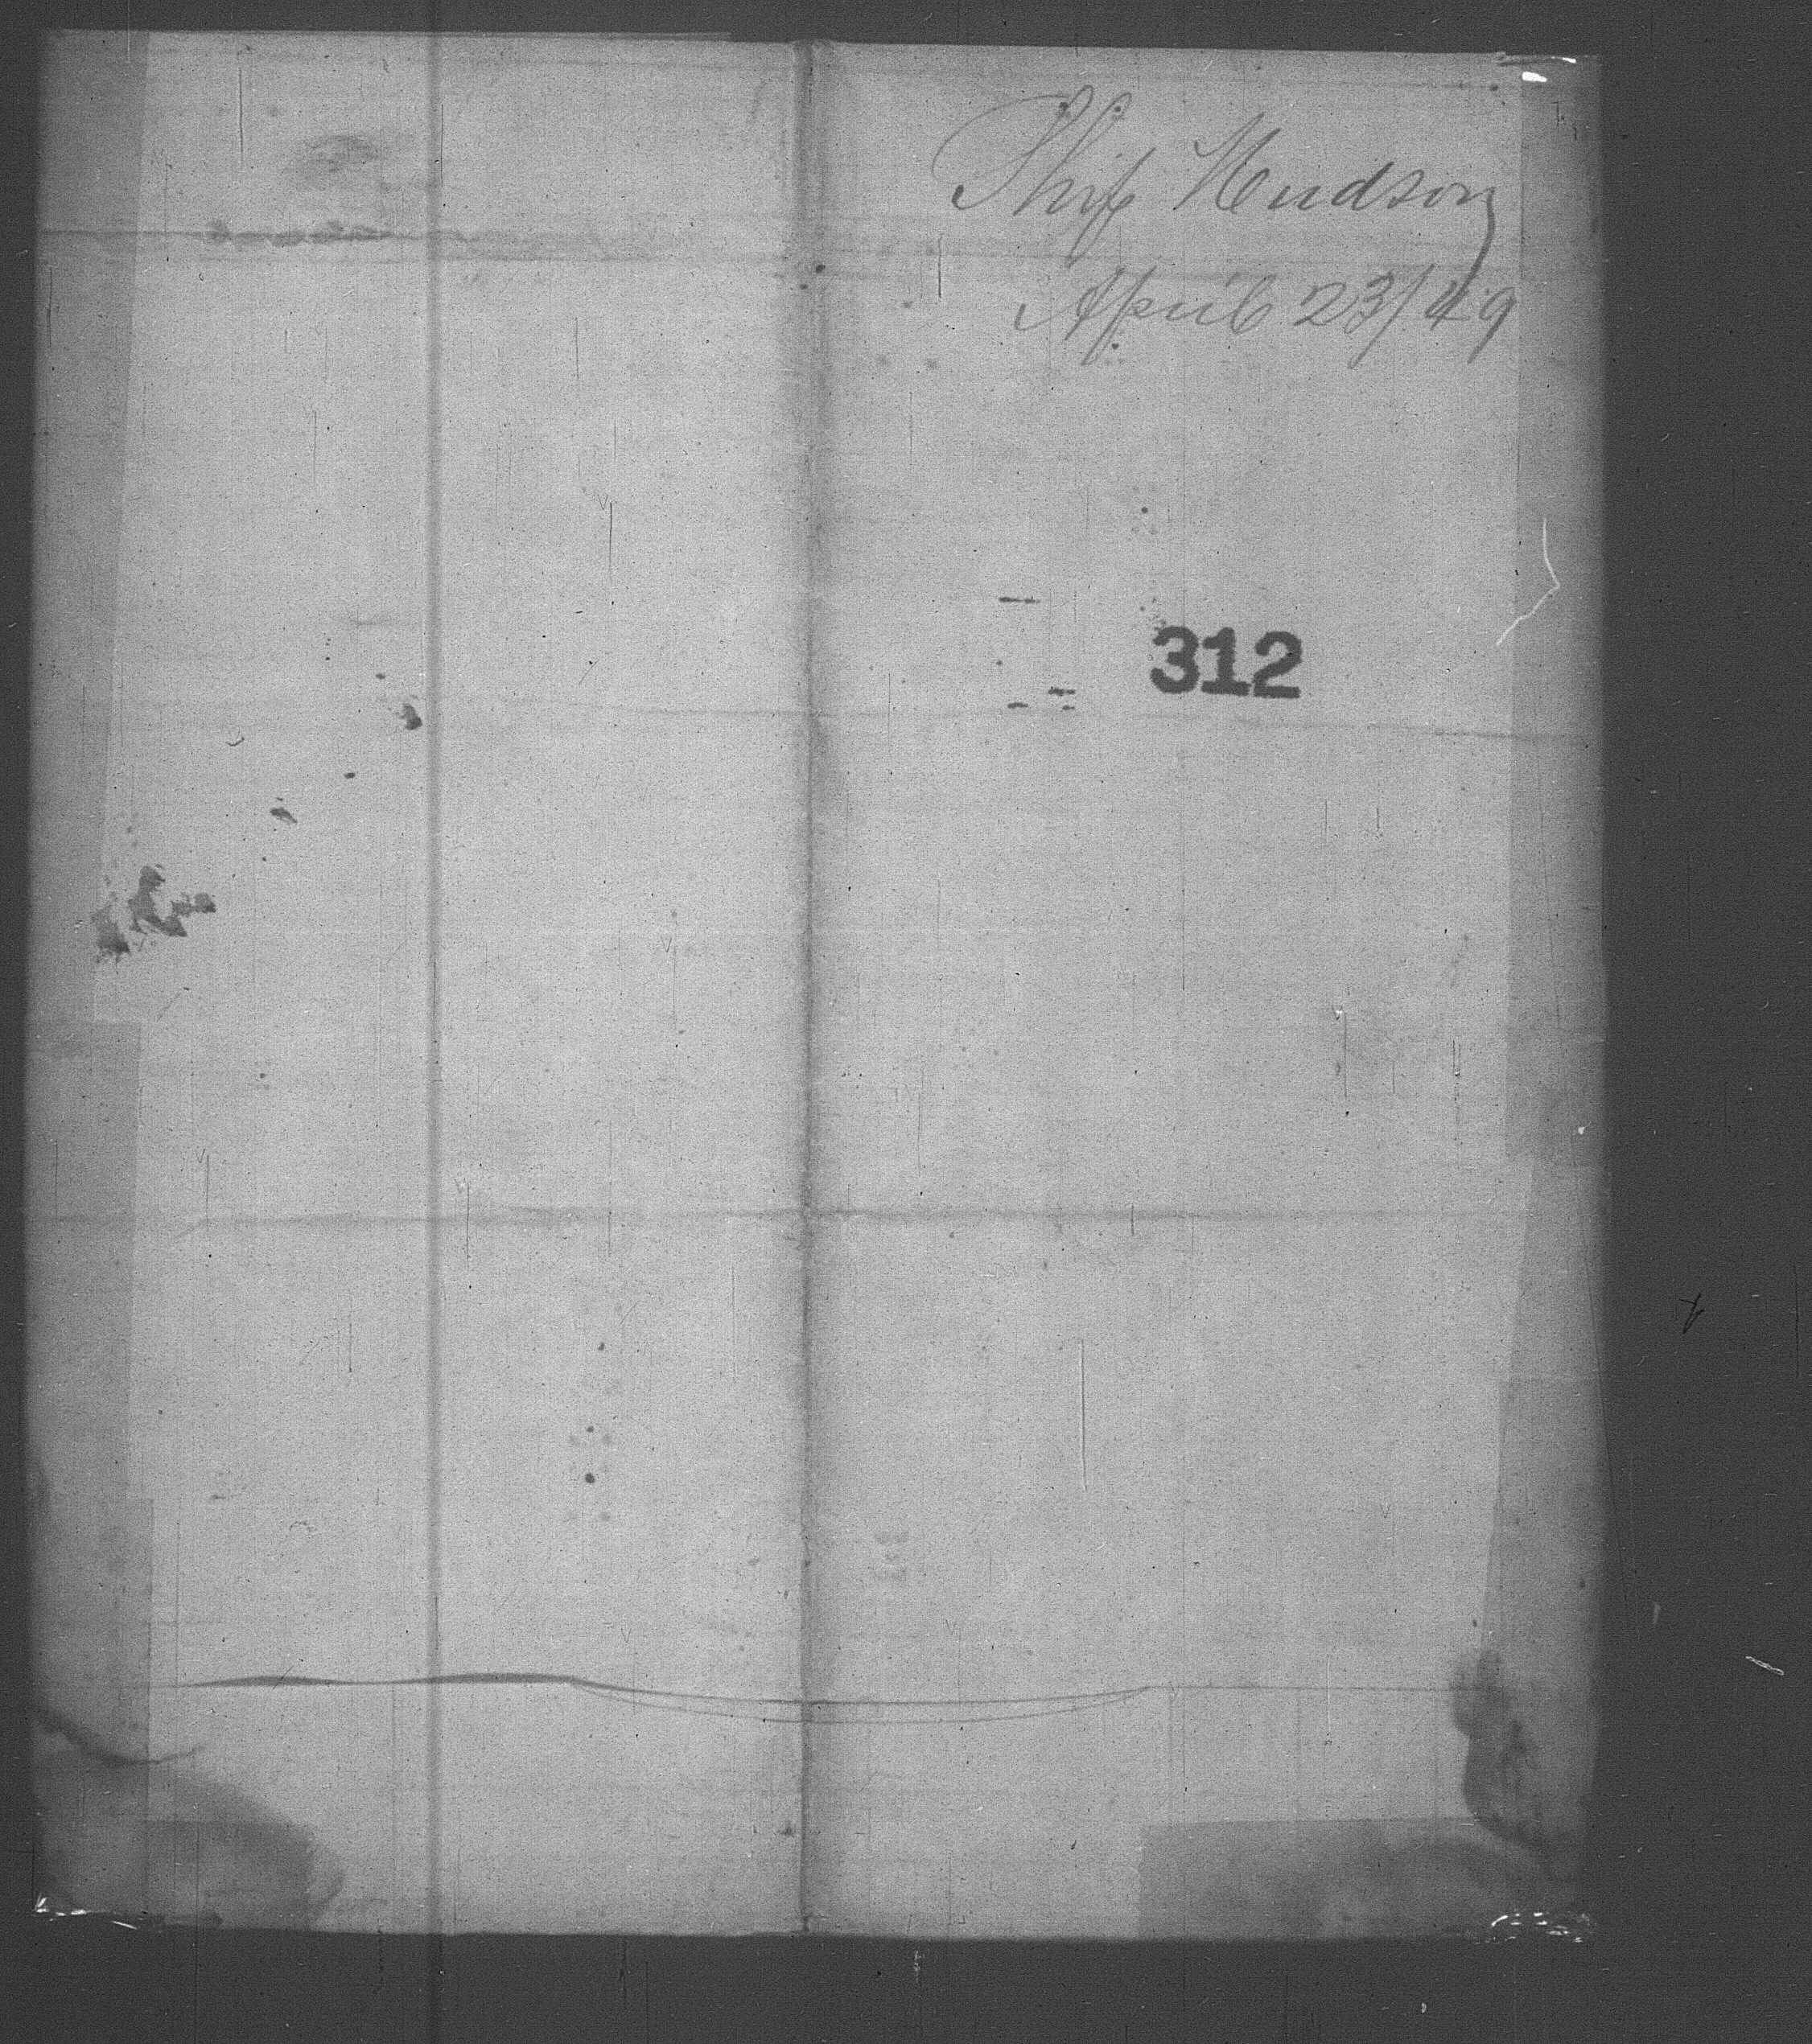 Ship Hudson
April 23/49
312